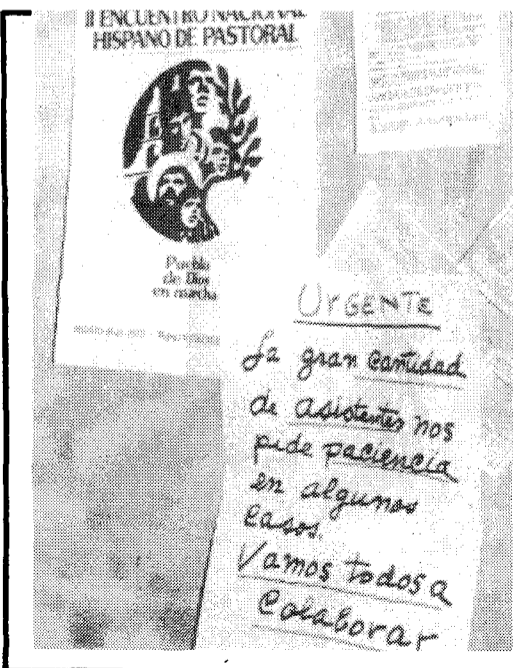 II ENCUENTRO NACIONAL
HISPANO DE PASTORAL
Pueblo
de Dios
en marcha
UrGENTE
La gran Cantidad
de asistentes nos
pide paciencia
en algunos
Casos.
Vamos todos a
Colaborar